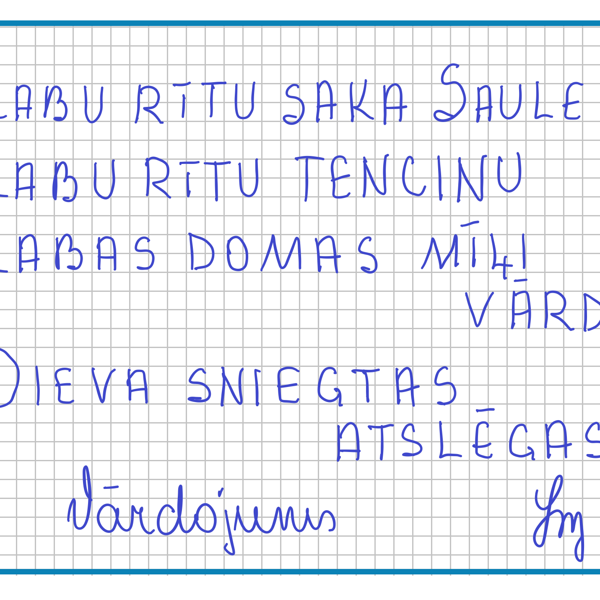 LABU RĪTU SAKA SAULE
LABU RĪTU TENCINU
LABAS DOMAS MĪĻI
VĀRD
DIEVA SNIEGTAS
ATSLĒGAS
Vārdojums